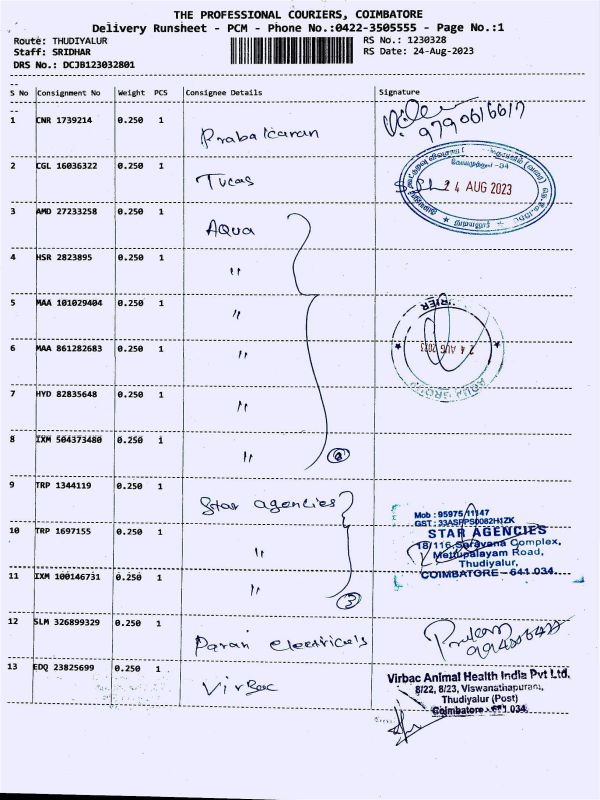 THE PROFESSIONAL COURIERS, COIMBATORE
Delivery Runsheet - PCM - Phone No.:0422-3505555 - Page No.:1
Route: THUDIYALUR
RS No.: 1230328
Staff: SRIDHAR
RS Date: 24-Aug-2023
DRS No.: DCJB123032801
S No Consignment No Weight PCS Consignee Details Signature
1 CNR 1739214 0.250 1 Prabakaran
2 CGL 16036322 0.250 1 Tucas
24 AUG 2023
3 AMD 27233258 0.250 1 AQUA
4 HSR 2823895 0.250 1 "
5 MAA 101029404 0.250 1 "
24 AUG 2023
6 MAA 861282683 0.250 1 "
7 HYD 82835648 0.250 1 "
8 IXM 504373480 0.250 1 "
9 TRP 1344119 0.250 1 Star agencies
Mob : 95975 11147
GST : 33ASFPS0082H1ZK
10 TRP 1697155 0.250 1 "
STAR AGENCIES
18/116 Saravana Complex,
Mettupalayam Road,
Thudiyalur,
COIMBATORE - 641 034.
11 IXM 100146731 0.250 1 "
3
12 SLM 326899329 0.250 1 Paran electricals
13 EDQ 23825699 0.250 1 Virbac
Virbac Animal Health India Pvt Ltd,
8/22, 8/23, Viswanathapuram,
Thudiyalur (Post)
Coimbatore - 641 034